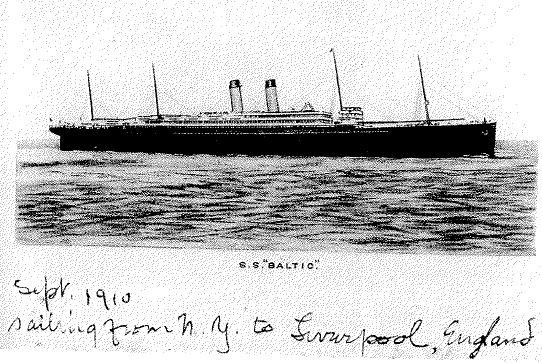 S.S. "BALTIC".
Sept. 1910
sailing from N.Y. to Liverpool, England